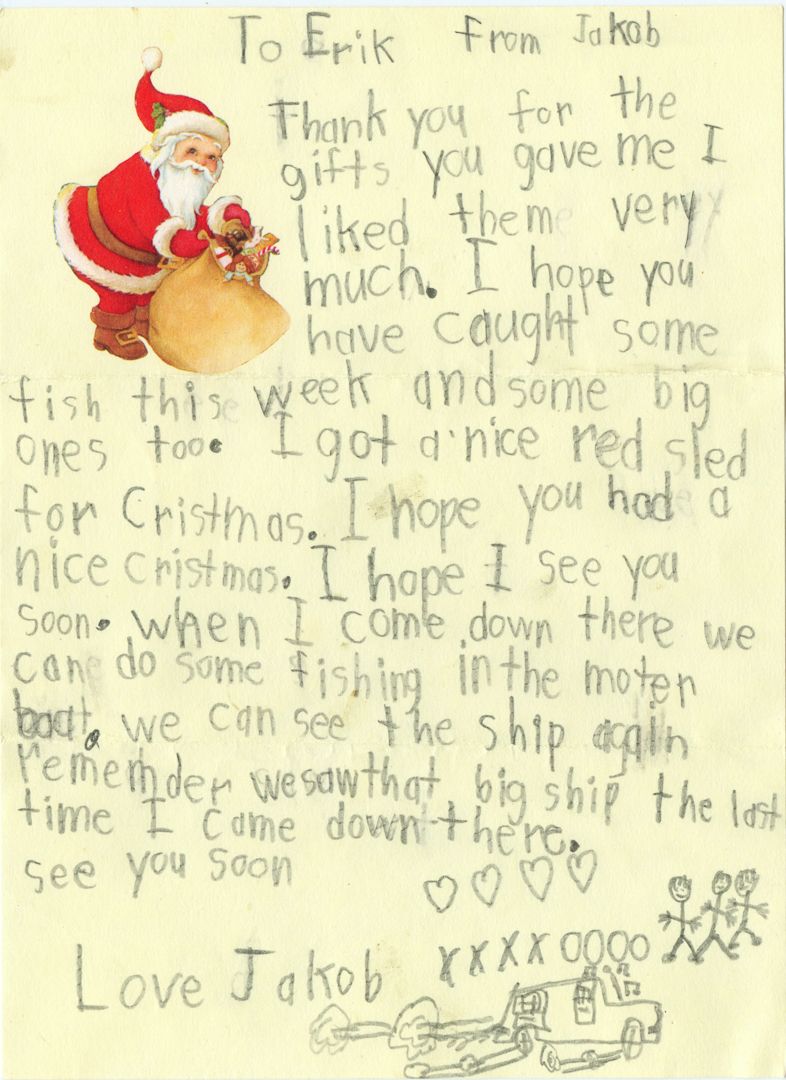 To Erik From Jakob
Thank you for the
gifts you gave me I
liked them very
much. I hope you
have caught some
fish this week and some big
ones too. I got a nice red sled
for Cristmas. I hope you had a
nice cristmas. I hope I see you
soon. when I come down there we
can do some fishing in the moter
boat. we can see the ship again
rememder we saw that big ship the last
time I came down there.
see you soon
xxxx oooo
Love Jakob